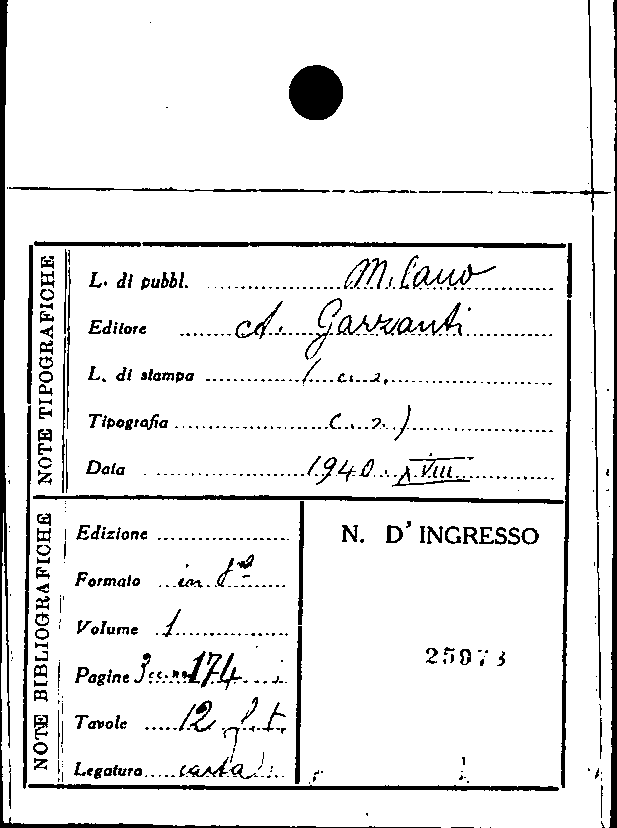 NOTE TIPOGRAFICHE
L. di pubbl. Milano
Editore A. Garzanti
L. di stampa ( c. s.
Tipografia c. s. )
Data 1940. XVIII
NOTE BIBLIOGRAFICHE
Edizione
Formato in 8º
Volume 1
Pagine 174
Tavole 12 f. t.
Legatura carta
N. D'INGRESSO
25973